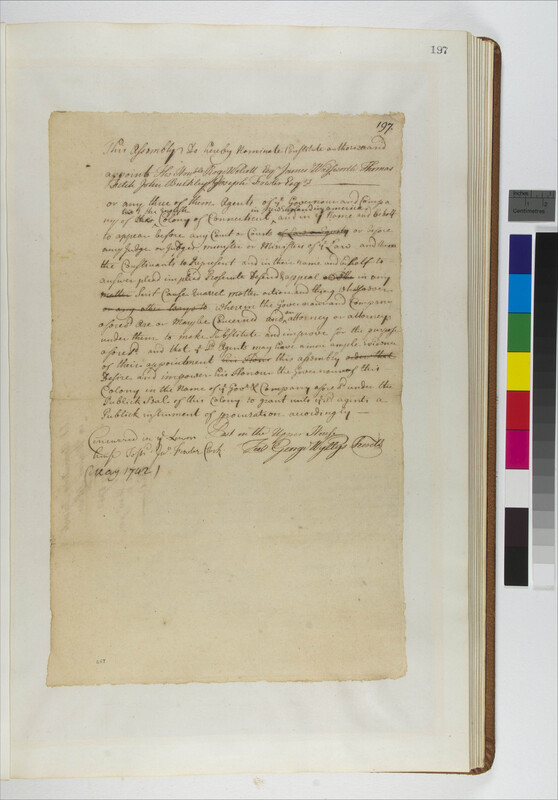 197
197.
This Assembly Do hereby Nominate Constitute authorize and
appoint The Honble Roger Wolcott Esqr James Wadsworth Thomas
Fitch John Bulkley Joseph Fowler Esqrs
or any three of them Agents of ye Governour and Compa
ny of the English Colony of Connecticut in New England in america, and in ye Name and behalf
to appear before any Court or Courts or before
any Judge or Judges minister or Ministers of ye Law and then
the Constituants to Represent and in their name and behalf to
answer plead implead Prosecute Defend & appeal in any
matter Suit Cause Quarrel matter action and thing whatsoever
or any other wherein the Governour and Company
aforesd Are or May be Concerned And an attorney or attorneys
under them to make Substitute and improve for the purpose
aforesd and that ye sd Agents may have a more ample Evidence
of their appointment this assembly
Desire and impower his Honour the Governour of this
Colony in the Name of ye Govr & Company aforesd under the
Publick Seal of this Colony to grant unto ye sd agents a
Publick instrument of procuration accordingly —
Past in the Upper House
Concurred in ye Lower
House Test Jno Fowler Clerk
Test George Wyllys Secret
(May 1742)